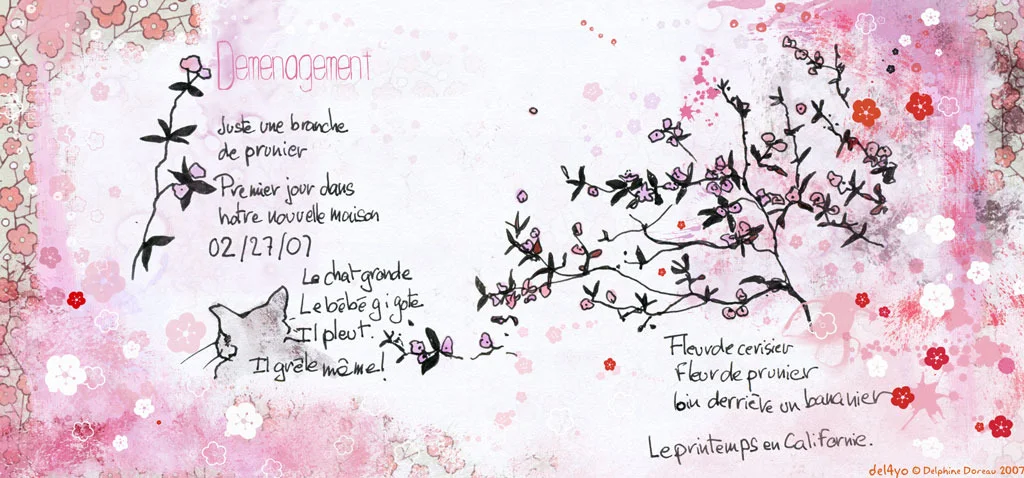 Demenagement
Juste une branche
de prunier
Premier jour dans
notre nouvelle maison
02/27/07
Le chat gronde
Le bébé gigote
Il pleut.
Il grêle même!
Fleur de cerisier
Fleur de prunier
loin derrière un bananier
Le printemps en Californie.
del4yo © Delphine Doreau 2007